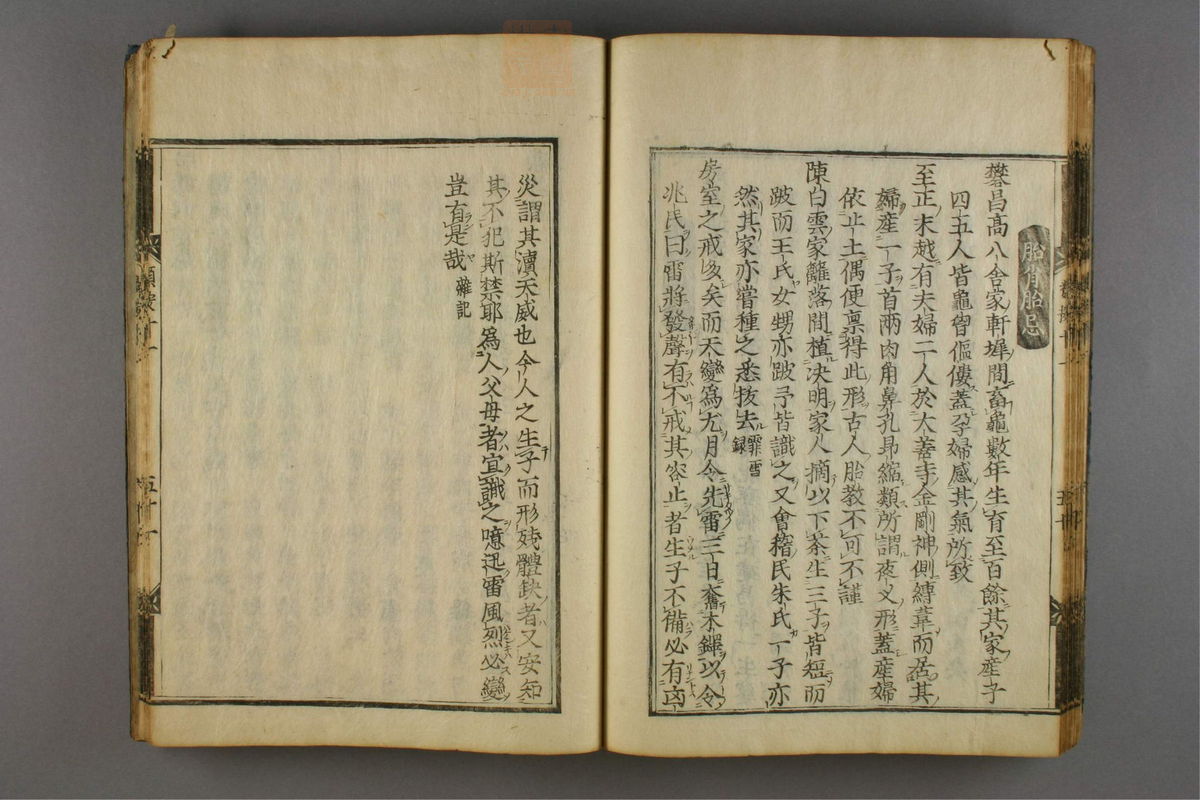 胎育胎忌
礬昌高八舍家軒墀間畜龜數年生育至百餘其家産子
四五人皆龜胷傴僂蓋孕婦感其氣所致
至正末越有夫婦二人於大善寺金剛神側縛葦而居其
婦産一子首兩肉角鼻孔昻縮類所謂夜叉形蓋産婦
依止土偶便禀得此形古人胎教不可不謹
陳白雲家籬落間植决明家人摘以下茶生三子皆短而
跛而王氏女甥亦跛予皆識之又會稽民朱氏一子亦
然其家亦嘗種之悉拔去霏雪録
房室之戒多矣而天變爲尤月令先雷三日奮木鐸以令
兆民曰雷將發聲有不戒其容止者生子不備必有凶
災謂其瀆天威也今人之生子而形殘體缺者又安知
其不犯斯禁耶爲人父母者宜識之噫迅雷風烈必變
豈有是哉雜記
五十一